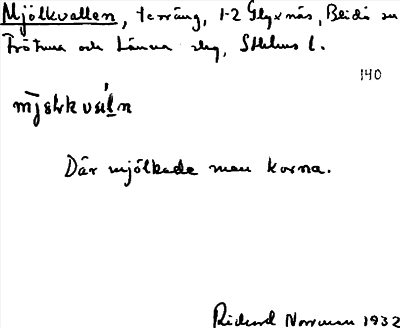 Mjölkvallen, terräng, 1-2 Glyxnäs, Blidö sn
Frötuna och Länna slg, Sthlms l.
140
Där mjölkade man korna.
Rickard Norrman 1932